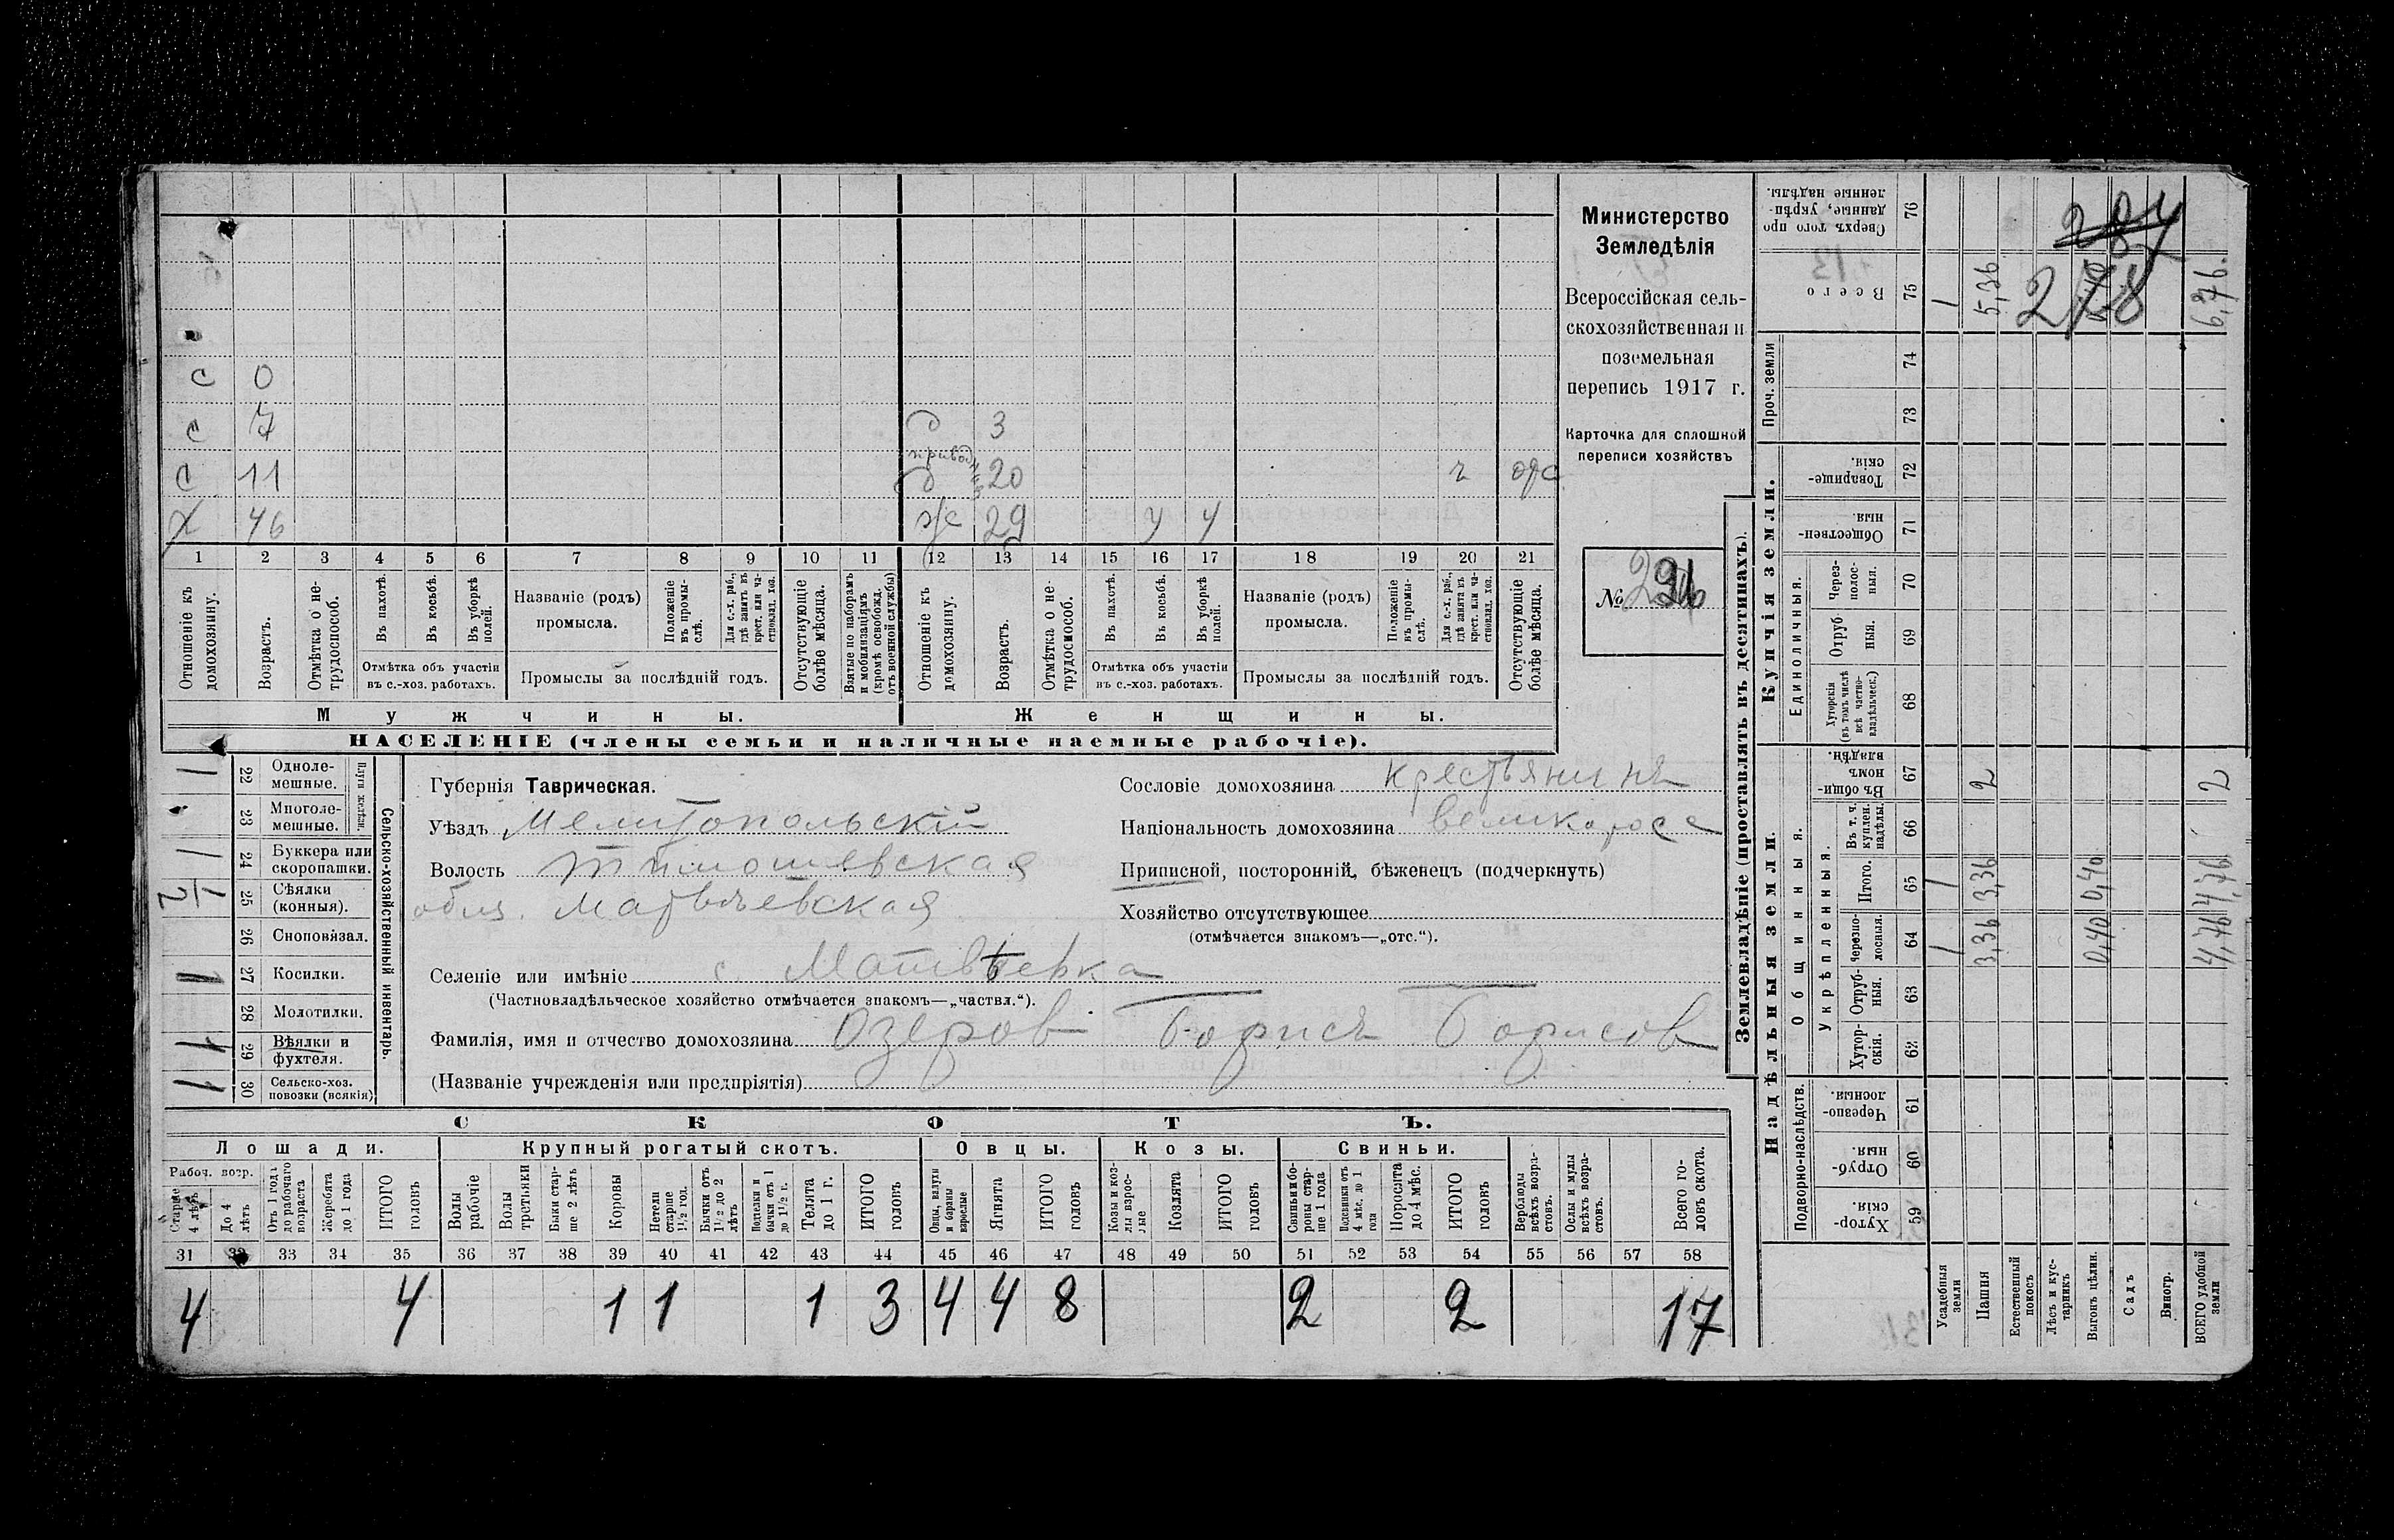 с 0
с 7 д 3
с 11 д 20 ч отс
х 46 ж 29 у у
1 2 3 4 5 6 7 8 9 10 11 12 13 14 15 16 17 18 19 20 21
Отношеніе къ домохозяину.
Возрастъ.
Отмѣтка о не-трудоспособ.
Въ пахотѣ.
Въ косьбѣ.
Въ уборкѣ полей.
Отмѣтка объ участіи въ с.-хоз. работахъ.
Названіе (родъ) промысла.
Положеніе въ промы-слѣ.
Для с.-х. раб., гдѣ занятъ въ крест. или ча-стновлад. хоз.
Промыслы за послѣдній годъ.
Отсутствующіе болѣе мѣсяца.
Взятые по наборамъ и мобилизаціямъ (кромѣ освобожд. отъ военной службы)
Отношеніе къ домохозяину.
Возрастъ.
Отмѣтка о не-трудоспособ.
Въ пахотѣ.
Въ косьбѣ.
Въ уборкѣ полей.
Отмѣтка объ участіи въ с.-хоз. работахъ.
Названіе (родъ) промысла.
Положеніе въ промы-слѣ.
Для с.-х. раб., гдѣ занята въ крест. или ча-стновлад. хоз.
Промыслы за послѣдній годъ.
Отсутствующіе болѣе мѣсяца.
Мужчины. Женщины.
НАСЕЛЕНІЕ (члены семьи и наличные наемные рабочіе).
Министерство
Земледѣлія
Всероссійская сель-
скохозяйственная и
поземельная
перепись 1917 г.
Карточка для сплошной
переписи хозяйствъ
№
Сельско-хозяйственный инвентарь.
Плуги желѣзн.
22 Одноле-мешные. 1
23 Многоле-мешные.
24 Буккера или скоропашки. 1
25 Сѣялки (конныя). 1/2
26 Сноповязал.
27 Косилки. 1
28 Молотилки.
29 Вѣялки и фухтеля. 1
30 Сельско-хоз. повозки (всякія) 1
Губернія Таврическая.
Уѣздъ Мелитопольскій
Волость Тимошевская
Матвѣевская
Селеніе или имѣніе с. Матвѣевка
(Частновладѣльческое хозяйство отмѣчается знакомъ—„частвл.“).
Фамилія, имя и отчество домохозяина Озеров Борисъ Борисов
(Названіе учрежденія или предпріятія)
Сословіе домохозяина крестьянинъ
Національность домохозяина великоросс
Приписной, посторонній, бѣженецъ (подчеркнуть)
Хозяйство отсутствующее
(отмѣчается знакомъ—„отс.“).
СКОТЪ.
Лошади. Крупный рогатый скотъ. Овцы. Козы. Свиньи.
Рабоч. возр.
Старше 4 лѣтъ
До 4 лѣтъ
Отъ 1 года до рабочаго возраста
Жеребята до 1 года
ИТОГО головъ
Волы рабочіе
Волы третьяки
Быки стар-ше 2 лѣтъ
Коровы
Нетели старше 1½ год.
Бычки отъ 1½ до 2 лѣтъ
Подтелки и бычки отъ 1 до 1½ г.
Телята до 1 г.
ИТОГО головъ
Овцы, валухи и бараны взрослые
Ягнята
ИТОГО головъ
Козы и коз-лы взрос-лые
Козлята
ИТОГО головъ
Свиньи и бо-ровы стар-ше 1 года
Подсвинки отъ 4 мѣс. до 1 года
Поросята до 4 мѣс.
ИТОГО головъ
Верблюды всѣхъ возра-стовъ.
Ослы и мулы всѣхъ возра-стовъ.
Всего го-ловъ скота.
31 32 33 34 35 36 37 38 39 40 41 42 43 44 45 46 47 48 49 50 51 52 53 54 55 56 57 58
4 4 1 1 1 3 4 4 8 2 2 17
Землевладѣніе (проставлять въ десятинахъ).
Надѣльныя земли. Купчія земли. Проч. земли
Подворно-наслѣдств.
Общинныя.
Укрѣпленныя.
Единоличныя.
Хутор-скія. 59
Отруб-ныя. 60
Черезпо-лосныя. 61
Хутор-скія. 62
Отруб-ныя. 63
Черезпо-лосныя. 64
Итого. 65
Въ т. ч. куплен. надѣлы. 66
Въ общи-номъ владѣн. 67
Хуторскія (въ томъ числѣ всѣ частно-владѣльческ.) 68
Отруб-ныя. 69
Через-полос-ныя. 70
Обществен-ныя. 71
Товарище-скія. 72
73
74
Всего 75
Сверхъ того про-данные, укрѣп-ленные надѣлы. 76
Усадебныя земли 1 1 1
Пашня 3,36 3,36 2 5,36
Естественный покосъ
Лѣсъ и кус-тарникъ
Выгонъ цѣлин. 0,40 0,40
Садъ
Виногр.
ВСЕГО удобной земли 4,76 4,76 2 6,76.
287
278